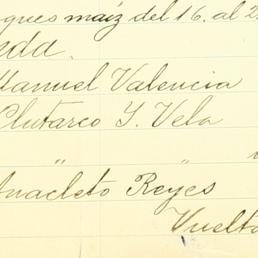 ques maíz del 16. al 2
eda.
Manuel Valencia
Plutarco Y. Vela
" "
Anacleto Reyes
Vuelta